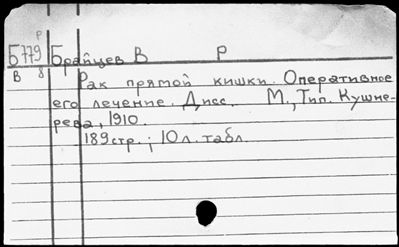 Р
Б779 Брайцев В Р
В 8
Рак прямой кишки. Оперативное
его лечение. Дисс. М., Тип. Кушне-
рева, 1910.
189стр.; 10л. табл.